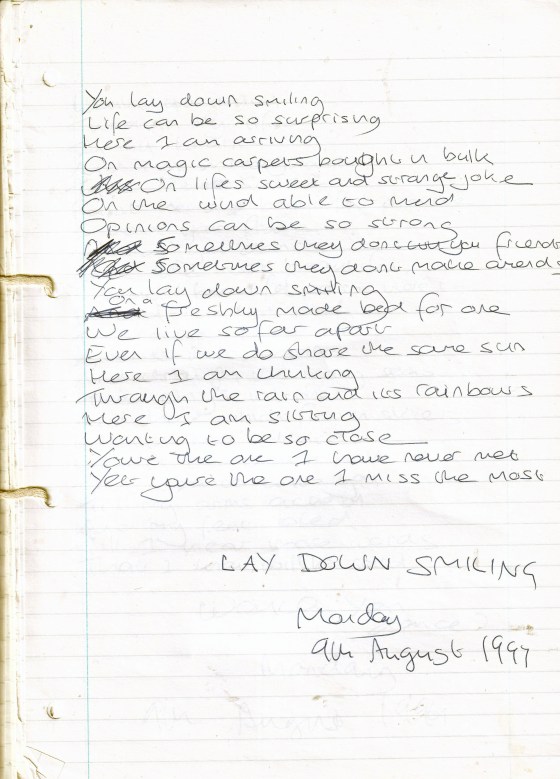 You lay down smiling
Life can be so surprising
Here I am arriving
On magic carpets bought in bulk
On lifes sweet and strange joke
On the wind able to mend
Opinions can be so strong
Sometimes they dont friends
Sometimes they dont make amends
You lay down smiling
On a freshly made bed for one
We live so far apart
Even if we do share the same sun
Here I am thinking
Through the rain and its rainbows
Here I am sitting
Wanting to be so close
You're the one I have never met
Yet you're the one I miss the most
LAY DOWN SMILING
Monday
9th August 1997